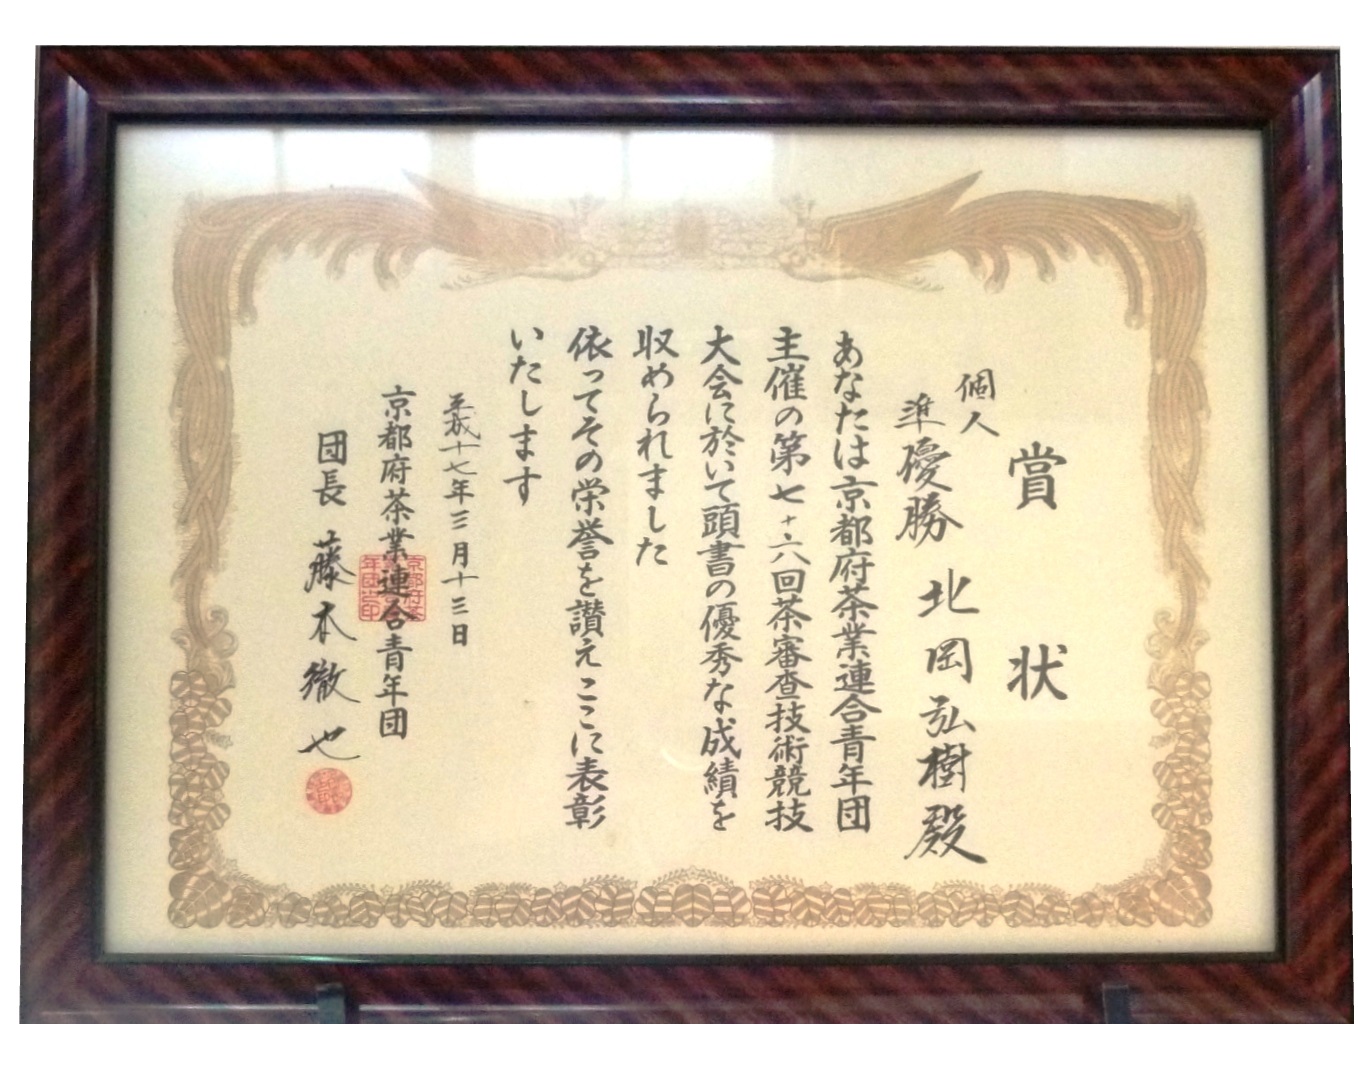 賞状
個人
準優勝 北岡弘樹殿
あなたは京都府茶業連合青年団
主催の第七十六八回茶審査技術競技
大会に於いて頭書の優秀な成績を
収められました
依ってその栄誉を讃えここに表彰
いたします
平成十七年三月十三日
京都府茶業連合青年団
団長 藤本徹也